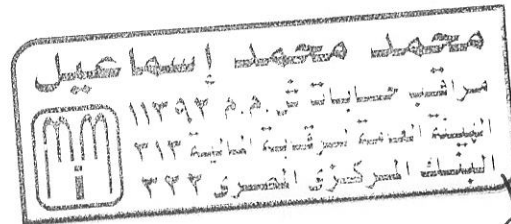 محمد محمد إسماعيل
مراقب حسابات س.م.م ١١٣٩٣
الهيئة العامة للرقابة المالية ٣١٣
البنك المركزى المصرى ٣٢٣